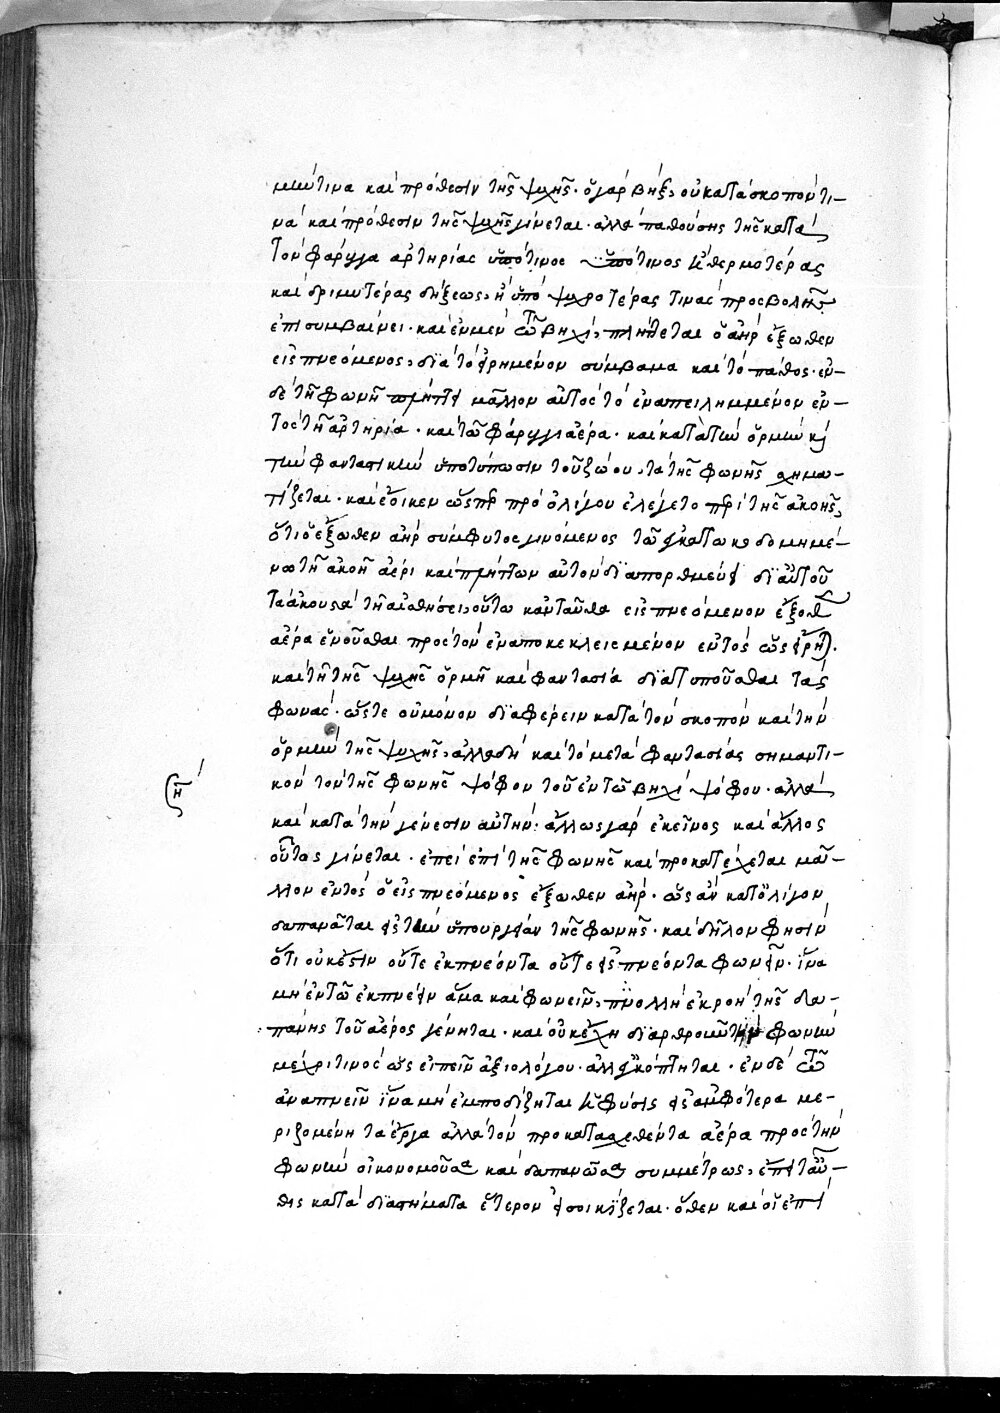 μήν τινα καὶ πρόθεσιν τῆς ψυχῆς· ὁ γὰρ βὴξ, οὐ κατὰ σκοπόν τι-
νὰ καὶ πρόθεσιν τῆς ψυχῆς γίνεται· ἀλλὰ παθούσης τῆς κατὰ
τὸν φάρυγγα ἀρτηρίας ὑπό τινος ὑπό τινος καὶ θερμοτέρας
καὶ δριμυτέρας δήξεως, ἢ ὑπὸ ψυχροτέρας τινὰς προσβολῆς
ἐπισυμβαίνει· καὶ ἐν μὲν τῷ βηχὶ, πλήττεται ὁ ἀὴρ ἔξωθεν
εἰσπνεόμενος, διὰ τὸ εἰρημένον σύμβαμα καὶ τὸ πάθος· ἐν
δὲ τῇ φωνῇ πλήττει μᾶλλον αὐτὸς τὸ ἐναπειλημμένον ἐν-
τὸς τῇ ἀρτηρία· καὶ τῷ φάρυγγι ἀέρα· καὶ κατὰ τὴν ὁρμὴν καὶ
τὴν φανταστικὴν ὑποτύπωσιν τοῦ ζώου, τὰ τῆς φωνῆς σχημα-
τίζεται· καὶ ἔοικεν ὥσπερ πρὸ ὀλίγου ἐλέγετο περὶ τῆς ἀκοῆς,
ὅτι ὁ ἔξωθεν ἀὴρ σύμφυτος γινόμενος τῷ ἐγκατωκοδομημέ-
νω τῇ ἀκοῇ ἀέρι καὶ πλήττων αὐτὸν διαπορθμεύει δι' αὐτοῦ
τὰ ἀκουστὰ τῇ αἰσθήσει, οὕτω κἀνταῦθα εἰσπνεόμενον ἔξωθεν
ἀέρα ἑνοῦσθαι πρὸς τὸν ἐναποκεκλεισμένον ἐντὸς ὡς εἴρηται.
καὶ τῇ τῆς ψυχῆς ὁρμῇ καὶ φαντασία διατυποῦσθαι τὰς
φωνάς· ὥστε οὐ μόνον διαφέρειν κατὰ τὸν σκοπὸν καὶ τὴν
ὁρμὴν τῆς ψυχῆς, ἀλλὰ δὴ καὶ τὸ μετὰ φαντασίας σημαντι-
κὸν τὸν τῆς φωνῆς ψόφον τοῦ ἐν τῷ βηχὶ ψόφου· ἀλλὰ
καὶ κατὰ τὴν γένεσιν αὐτήν· ἄλλως γὰρ ἐκεῖνος καὶ ἄλλος
οὗτος γίνεται· ἐπεὶ ἐπὶ τῆς φωνῆς καὶ προκατέχεται μᾶ-
λλον ἐντὸς ὁ εἰσπνεόμενος ἔξωθεν ἀὴρ· ὡς ἂν κατ' ὀλίγον
δαπανᾶται εἰς τὴν ὑπουργίαν τῆς φωνῆς· καὶ δῆλον φησὶν
ὅτι οὐκ ἔστιν οὔτε ἐκπνέοντα οὔτε εἰσπνέοντα φωνεῖν· ἵνα
μὴ ἐν τῷ ἐκπνεῖν ἅμα καὶ φωνεῖν, πολλὴ ἐκροὴ τῆς δα-
πάνης τοῦ ἀέρος γένηται· καὶ οὐκ ἔχη διαρθροῦν τὴν φωνὴν
μέχρι τινὸς ὡς εἰπεῖν ἀξιολόγου· ἀλλ' ἐγκόπτηται· ἐν δὲ τῷ
ἀναπνεῖν ἵνα μὴ ἐμποδίζηται ἡ φύσις εἰς ἀμφότερα με-
ριζομένη τὰ ἔργα ἀλλὰ τὸν προκατασχεθέντα ἀέρα πρὸς τὴν
φωνὴν οἰκονομοῦσα καὶ δαπανῶσα συμμέτρως, ἔπειτ' αὖ-
θις κατὰ διαστήματα ἕτερον εἰσοικίζεται· ὅθεν καὶ οἱ ἐπὶ